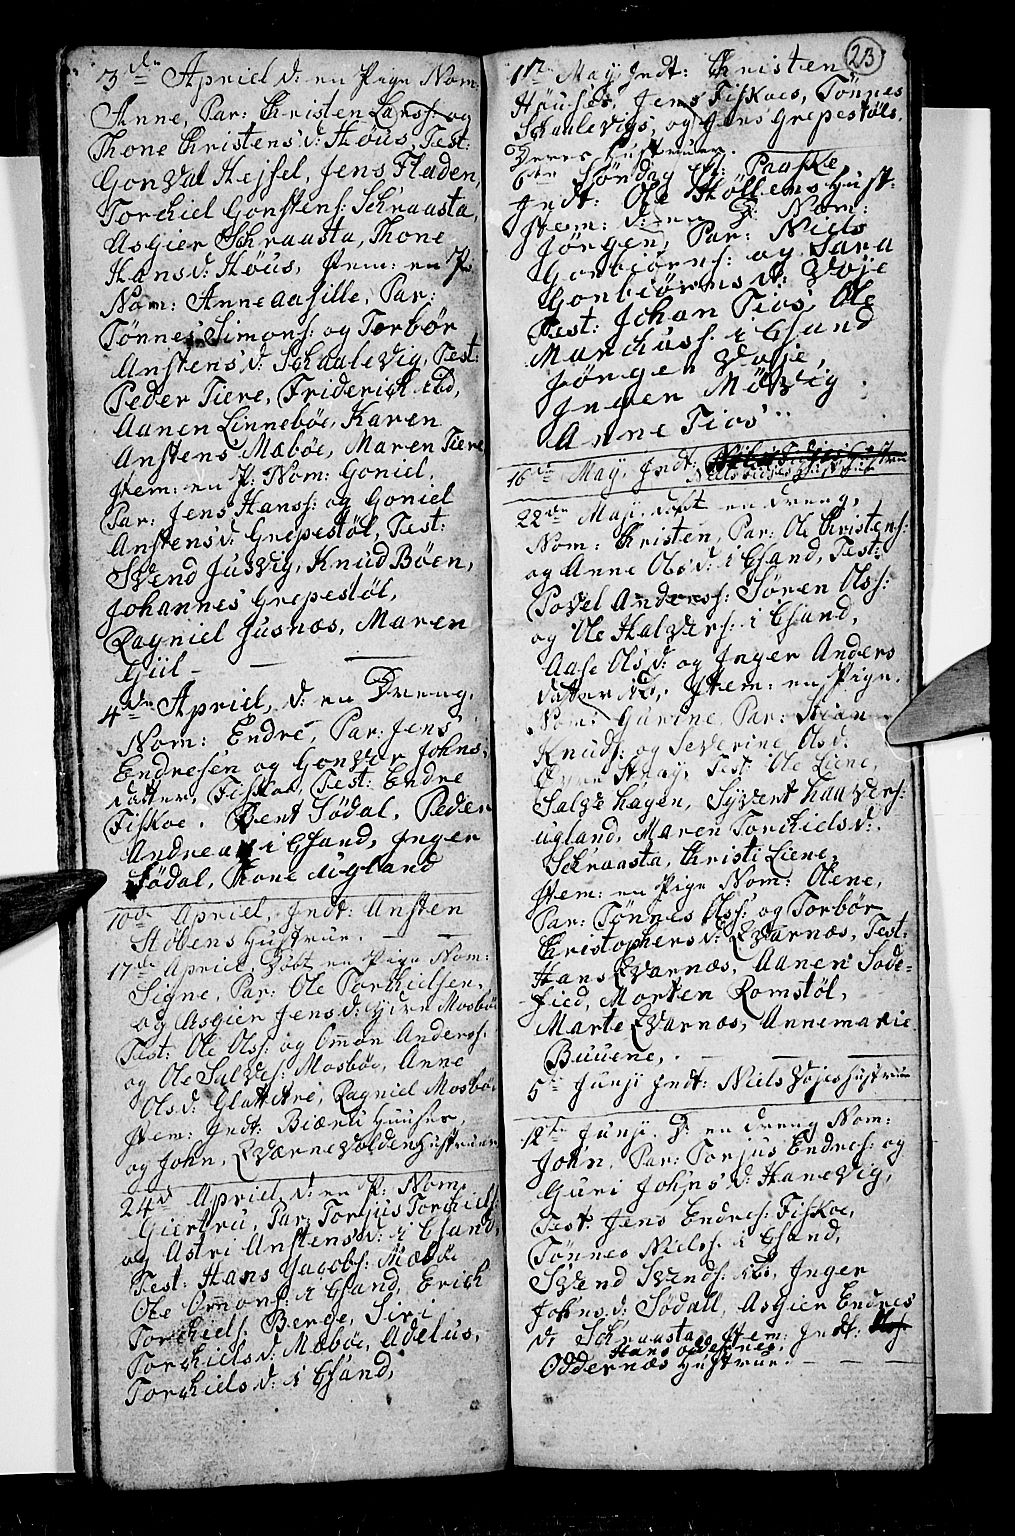 3de Apriel d: en Pige Nom:
Anne, Par: Christen Larss: og
Thone Christens d: Höus, Test:
Gonval Hejsel, Jens Fladen,
Torchiel Gonstens: Schraasta,
Asgier Schraasta, Thone
Hans d: Höus, Item: en P:
Nom: Anne aasille, Par:
Tönnes Simons: og Torbör
Anstens d: Schaalevig, Test:
Peder Tiere, Friderich ibd,
Aanen Linneböe, Karen
Anstens Mæböe, Maren Tiere
Item: en P: Nom: Goniel,
Par: Jens Hanss: og Goniel
Anstens d: Grepestöl, Test:
Svend Jusvig, Knud Böen,
Johannes Grepestöl,
Ragniel Jusnæs, Maren
Giil —
4de Apriel, d: en Dreng,
Nom: Endre, Par: Jens
Endresen og Gonvor Johns
datter, Fiskoe, Test: Endre
Fiskoe. Bent Södal, Peder
Andreas i Efsand, Inger
Södal, Thone Ugland
10de Apriel, Indt: Ansten
Stöbens Hustrue. —
17de Apriel, döbt en Pige Nom:
Signe, Par: Ole Torchielsen,
og Asgier Jens d: Mosböe
Test: Ole Olss: og Ommon Anderss:
og Ole Salves: Mosböe, Anne
Ols d: Glattetre, Ragniel Mosböe
Item: Indt: Biæru Huuses,
og John, Qværnevoldens Hustruer
24de Apriel, d: en P: Nom:
Giertru, Par: Torjus Torchiels:
og Astri Anstens d: i Efsand,
Test: Hans Jacobs: Mæböe
Ole Ommons: i Efsand, Erich
Torchiels: Berge, Siri
Torchiels d: Mæböe, Adelus,
Torchiels d: i Efsand,
23
1te May, Indt: Christen
Höuses, Jens Fiskoes, Tönnes
Skaalevigs, og Jens Grepestöls,
Deres Hustruer.
6te Söndag eft: Paaske,
Indt: Ole Stöllens Hust:
Item: d: en D: Nom:
Jörgen, Par: Niels
Gonbiörns: og Sara
Gonbiörns d: Voje
Test: Johan Tios, Ole
Marchuss: i Efsand
Jörgen Voje,
Inger Mövig
Anne Tios
16de May, Indt:
22de Maji, döbt en dreng,
Nom: Christen, Par: Ole Christens:
og Anne Ols d: i Efsand, Test:
Povel Anderss: Sören Olss:
og Ole Halvers: i Efsand,
Aase Ols d: og Inger Anders
datter ibd, Item: en Pige.
Nom: Gurine, Par: Stian
Knuds: og Severine Ols d:
Øvre Straj, Test: Ole Liene,
Salve hagen, Syvert Haavers:
ugland, Maren Torchiels d:
Schraasta, Christi Liene,
Item: en Pige Nom: Olene,
Par: Tönnes Olss: og Torbör
Christophers d: Qvarnæs, Test:
Hans Qvarnæs, Aanen Sode-
fied, Morten Romstöl,
Marte Qvarnæs, Annemarie
Buuene, .
5te Junji Indt: Niels Vojes Hustrue
12te Junji. d: en dreng Nom:
John, Par: Torjus Endres: og
Guri Johns d: Hanevig,
Test: Jens Endres: Fiskoe,
Tönnes Nielss: i Efsand,
Svend Svends: ibd, Inger
Johns d: Södall, Asgier Endres
d: Schraasta, Item: Indt:
Hans
Oddernæs Hustrue. —